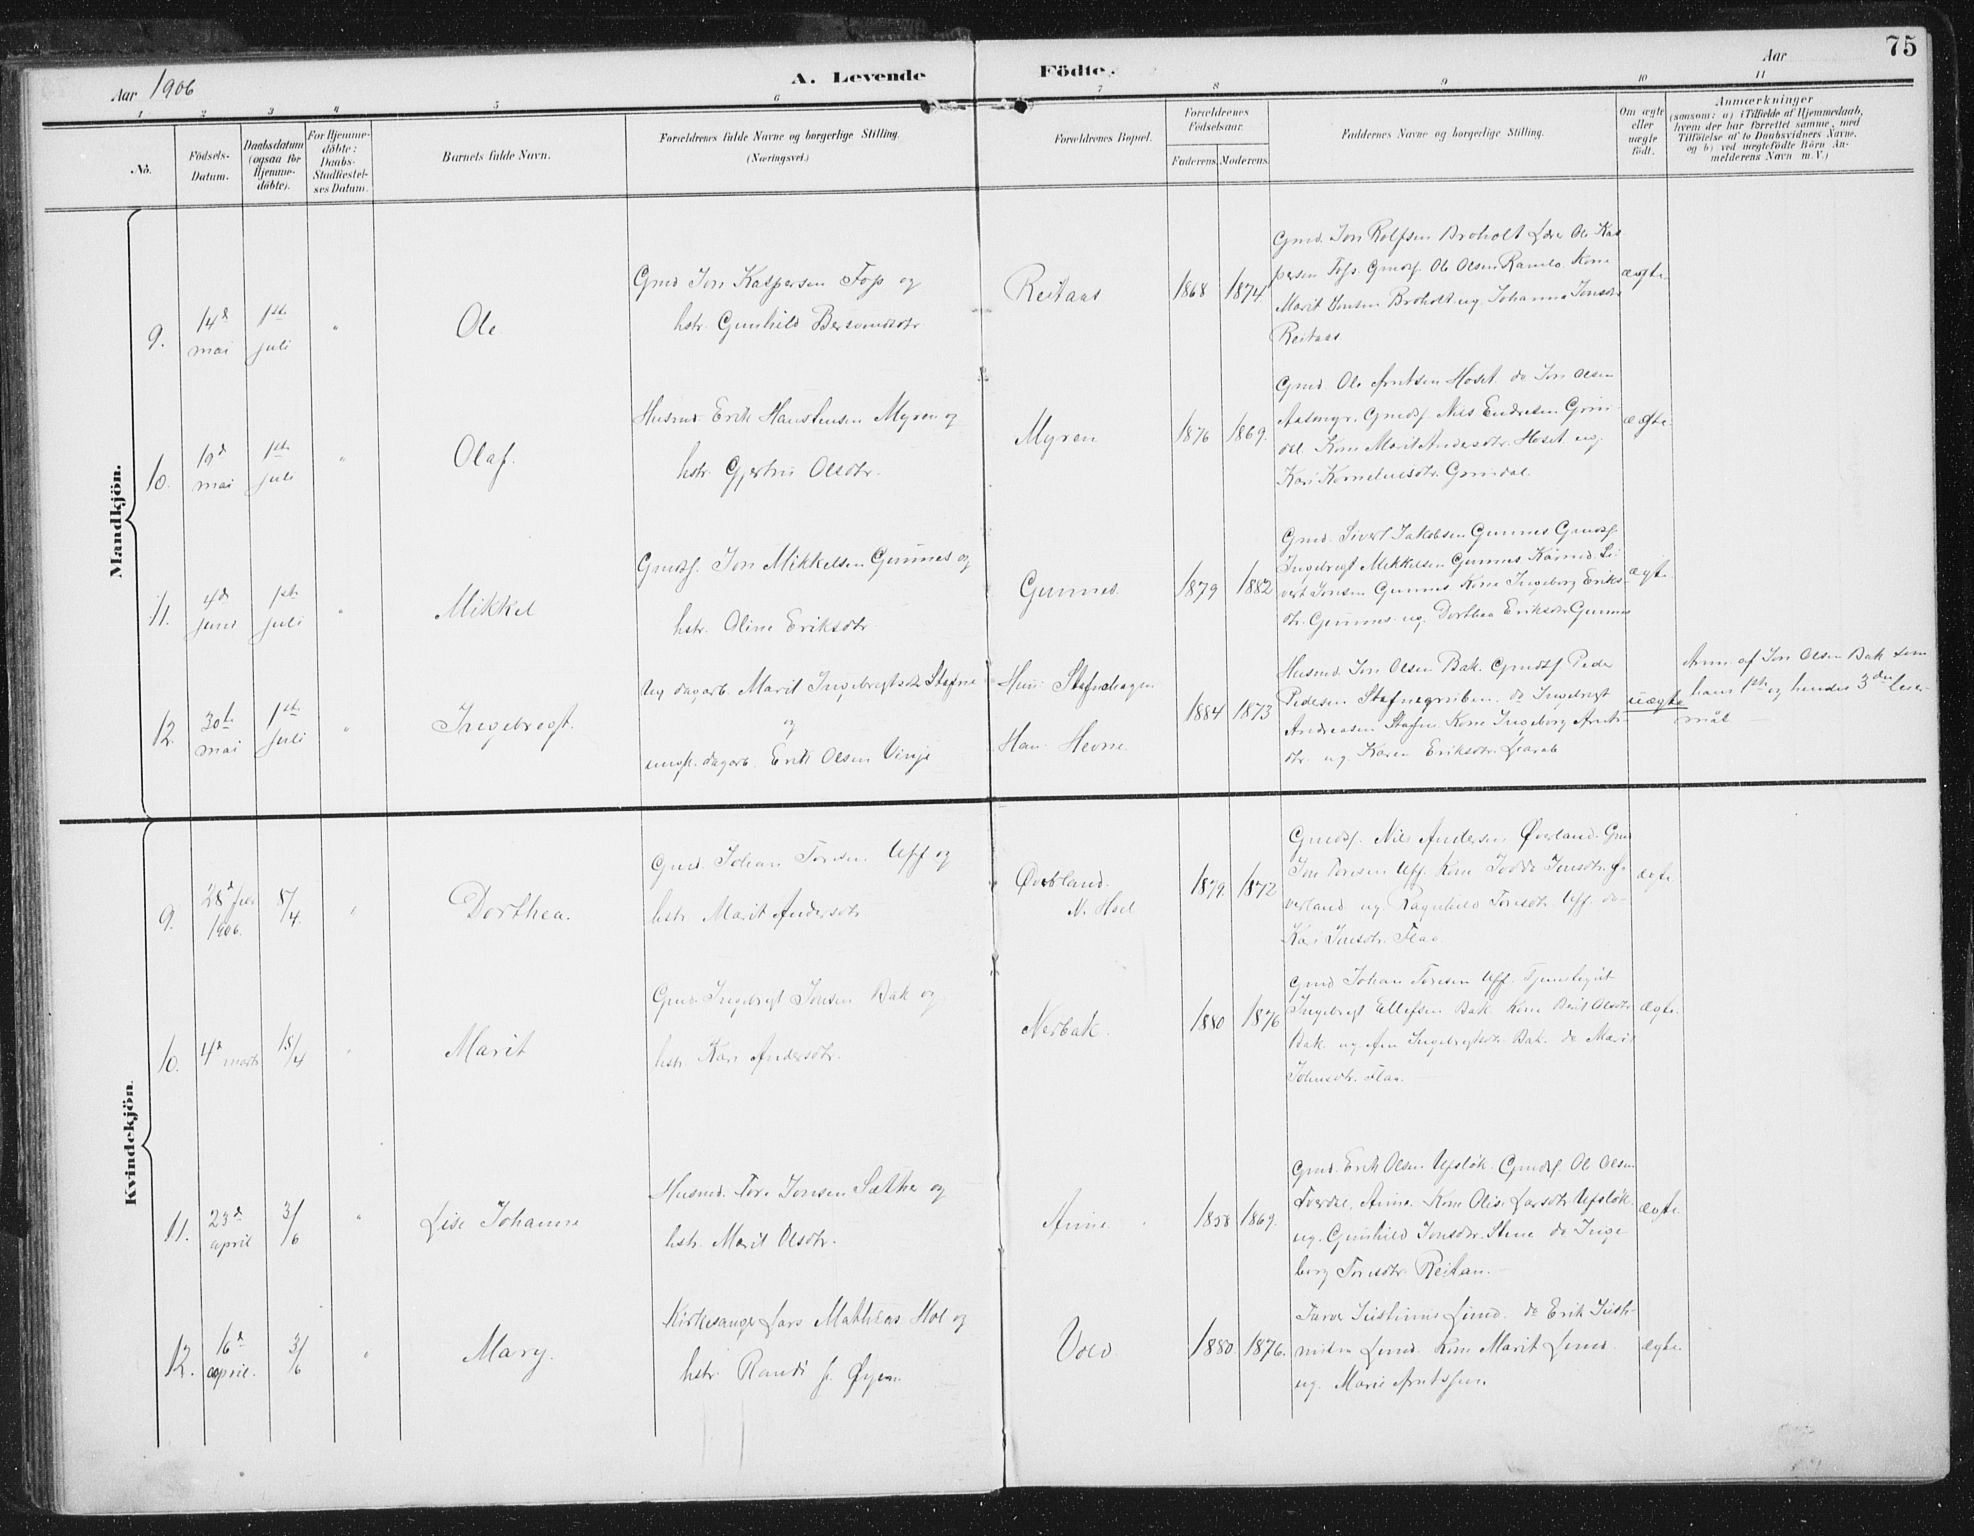 75
Aar 1906
A. Levende Födte.
Aar
1 2 3 4 5 6 7 8 9 10 11
No.
Födsels-Datum.
Daabsdatum (ogsaa for Hjemme-döbte).
For Hjemme-döbte: Daabs-Stadfæstel-ses Datum.
Barnets fulde Navn.
Forældrenes fulde Navne og borgerlige Stilling. (Næringsvei.)
Forældrenes Bopæl.
Forældrenes Födselsaar.
Faderens. Moderens.
Faddernes Navne og borgerlige Stilling.
Om ægte eller uægte födt.
Anmærkninger
(saasom: a) i Tilfælde af Hjemmedaab, hvem der har forrettet samme, med Tilföielse af to Daabsvidners Navne. og b) ved uægtefödte Börn An-melderens Navn m. V.)
Mandkjön.
9.
14d mai
1ste juli
"
Ole
Gmd Jon Kaspersen Foss og
hstr. Gunhild Bersvendsdtr.
Reitaas
1868
1874
Gmd. Jon Rolfsen Broholt Lær Ole Kas
persen Foss. Gmdsf. Ole Olsen Ramlo. Kone
Marit Jonsen Broholt ug. Johanna Jonsdtr
Reitaas
ægte
10.
19d mai
1ste juli
"
Olaf.
Husmd. Erik Haustensen Myren og
hstr. Gjertru Olsdtr.
Myren
1876
1869.
Gmd. Ole Arntsen Hoset. do Jon Olsen
Aasmyr. Gmdsf. Nils Endresen Grin-
dal. Kone Marit Andersdtr. Hoset ug.
Kari Korneliusdtr. Grindal.
ægte.
11.
4d juni
1ste juli
"
Mikkel
Gmdsf. Jon Mikkelsen Gunnes og
hstr. Oline Eriksdtr
Gunnes
1879
1882
Gmd. Sivert Jakobsen Gunnes Gmdsf
Ingebrigt Mikkelsen Gunnes Kaarmd. Si-
vert Jonsen Gunnes Kone Ingeborg Eriks-
dtr. Gunnes ug. Dorthea Eriksdtr Gunnes
ægte
12.
30te mai
1ste juli
"
Ingebregt.
Ug dagarb. Marit Ingebregtsdtr Stafne
og
ungk. dagarb. Erik Olsen Vinje
Hun: Stafnehagen
Han: Hevne
1884
1873
Husmd. Jon Olsen Bak. Gmdsf Peder
Pedersen Stafnegruben. do Ingebregt
Andreasen Stafne. Kone Ingeborg Arnts-
dtr. ug. Karen Eriksdtr.
uægte
Anm. af Jon Olsen Bak som
hans 1ste og hendes 3die leier-
maal
Kvindekjön.
9.
28d febr 1906.
8/4.
"
Dorthea.
Gmd. Johan Toresen Uff og
hstr Marit Andersdtr
Øverland.
N. Hoel
1879
1872
Gmdsf. Nils Andersen Øverland. Gmd
Jon Toresen Uff. Kone Jonsdtr. Ø-
verland ug Ragnhild Toresdtr Uff. do
Kari Jonsdtr. Flaa.
ægte
10.
4d marts
15/4
"
Marit
Gmd. Ingebrigt Jonsen Bak og
hstr. Kari Andersdtr.
Nerbak.
1880
1876
Gmd Johan Toresen Uff. Tjenestegut
Ingebrigt Ellefsen Bak. Kone Berit Olsdtr
Bak. ug. Ingebrigtsdtr. Bak. do Marit
Johnsdtr. Flaa.
ægte.
11.
23d april
3/6
"
Lise Johanna
Husmd. Tore Jonsen Sæther og
hstr. Marit Olsdtr.
Anne
1858
1869.
Gmd. Erik Olsen Ufsløk. Gmdsf. Ole Olsen
Anne. Kone Olise Larsdtr Ufsløk.
ug. Gunhild Jonsdtr. Stene do Inge-
borg Toresdtr. Reitan.
ægte.
12.
16d april.
3/6
"
Mary.
Kirkesanger Lars Mathias Hol og
hstr. Randi f. Øyen.
Vold
1880.
1876.
Farver Justinus Lund. do Erik Justi-
nusen Lund. Kone Marit Lund.
ug. Marie
ægte.